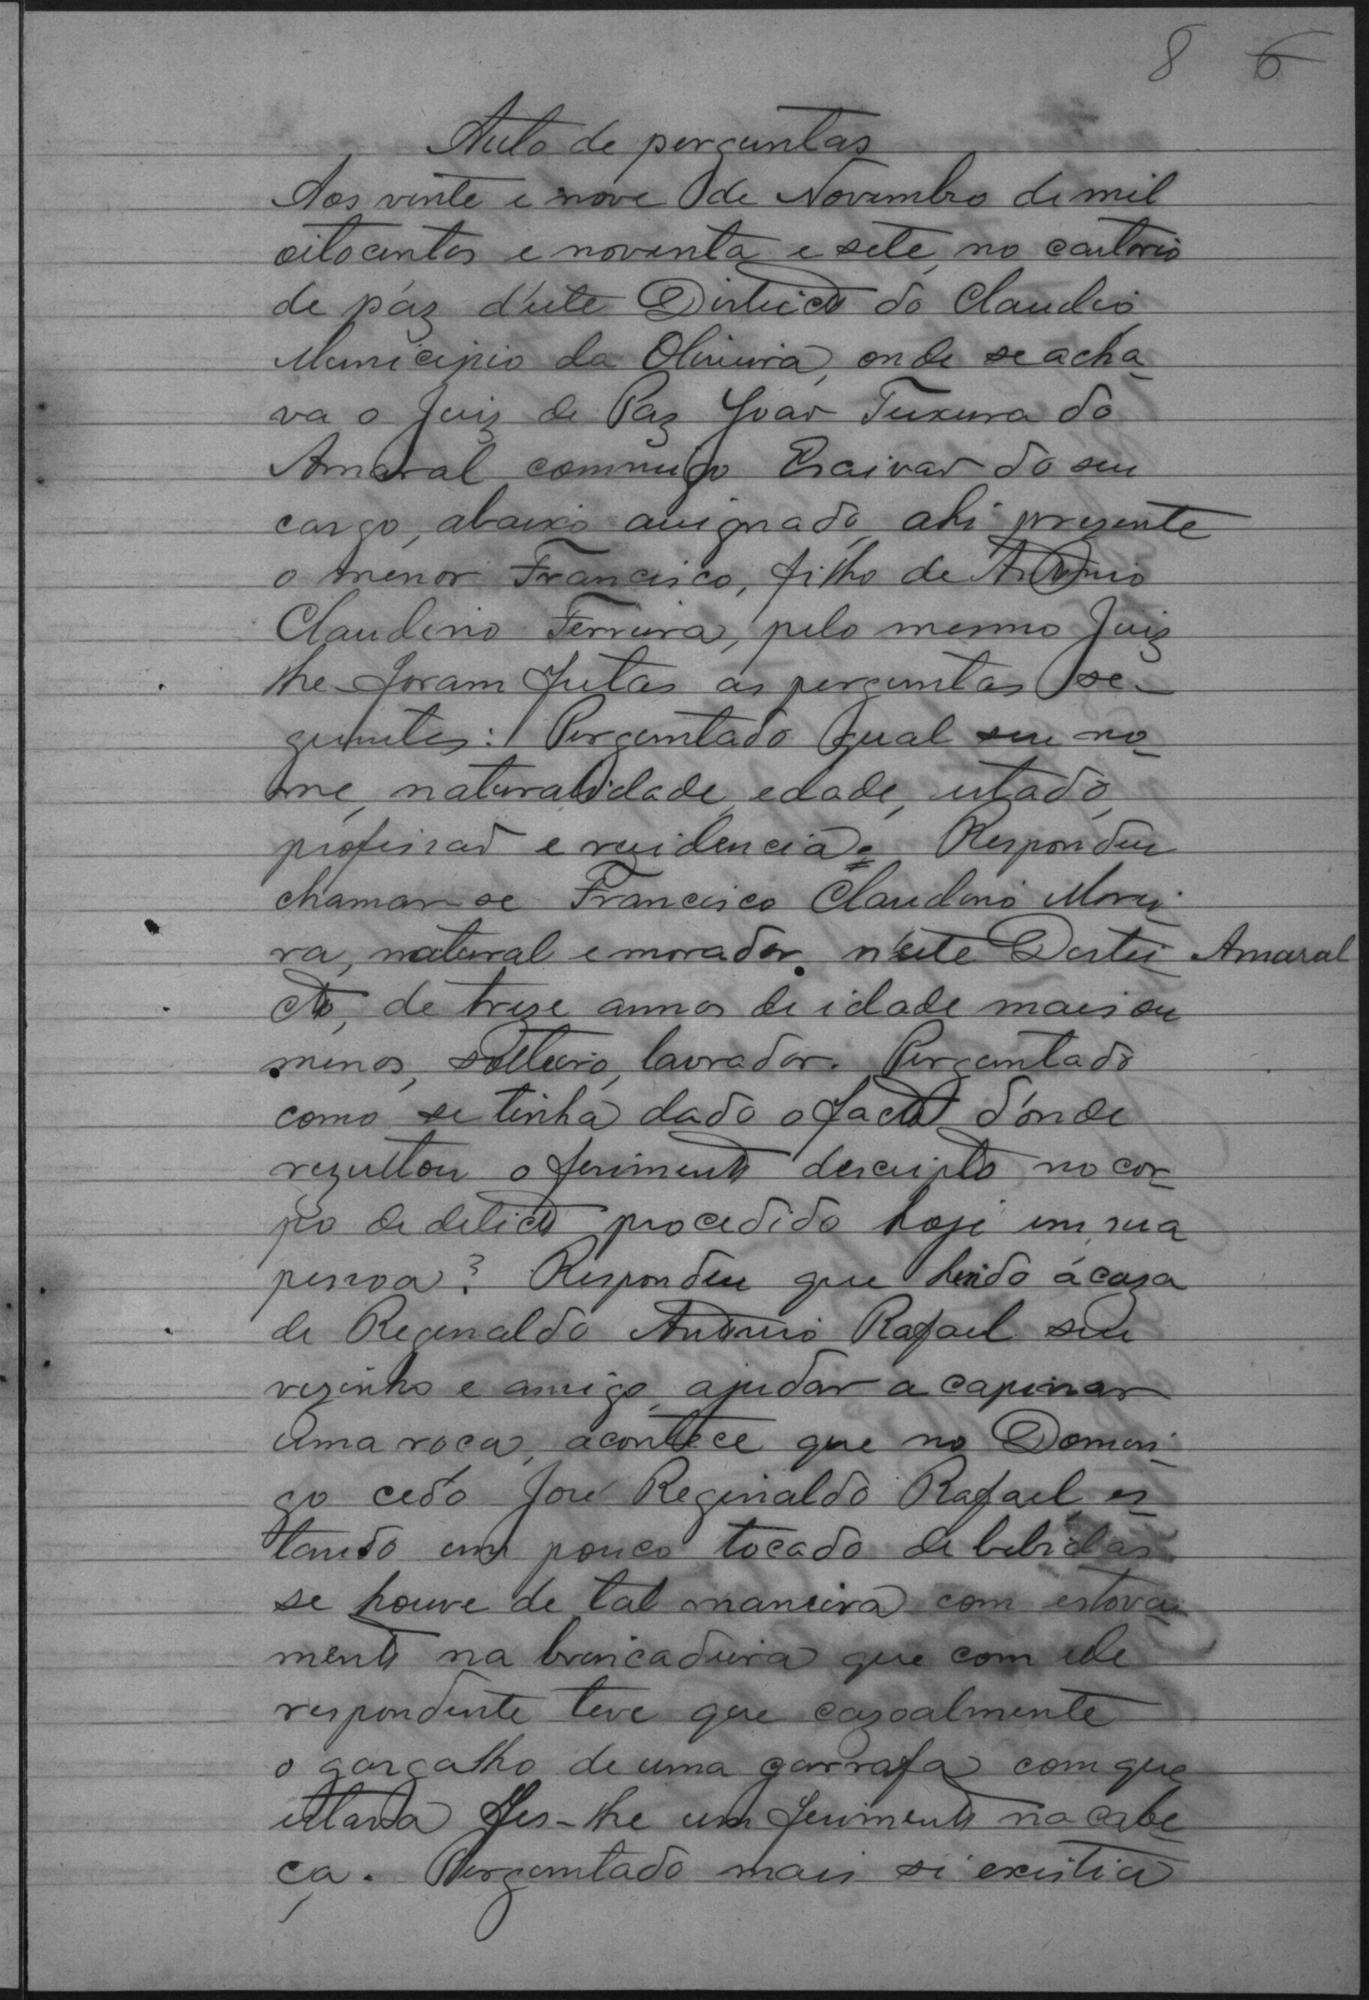 8 6
Auto de perguntas
Aos vinte e nove de Novembro de mil
oitocentos e noventa e sete, no cartorio
de páz d'este Districto do Claudio,
Municipio da Oliveira, onde se acha-
va o Juiz de Paz João Teixeira do
Amaral commigo Escivão do seu
cargo, abaixo assignado, ahi prezente
o menor Francisco, filho de Antonio
Claudino Ferreira, pelo mesmo Juiz
lhe foram feitas as perguntas se-
guintes: Perguntado qual seu no-
me, naturalidade, edade, estado,
profissão e rezidencia. Respondeu
chamar-se Francisco Claudino Morei-
ra, natural e morador n'este Destri- Amaral
cto, de treze annos de idade mais ou
menos, solteiro, lavrador. Perguntado
como se tinha dado o facto d'onde
rezultou o ferimento descripto no cor-
po de delicto procedido hoje em sua
pessoa? Respondeu que hindo á caza
de Reginaldo Antonio Rafael seu
vezinho e amigo, ajudar a capinar
uma roça, acontece que no Domin-
go cedo José Reginaldo Rafael, es-
tando um pouco tocado de bebidas
se houve de tal maneira com estova-
mento na brincadeira que com elle
respondente teve que cazoalmente
o gargalho de uma garrafa com que
estava fes-lhe um ferimento na cabe-
ça. Perguntado mais si existia